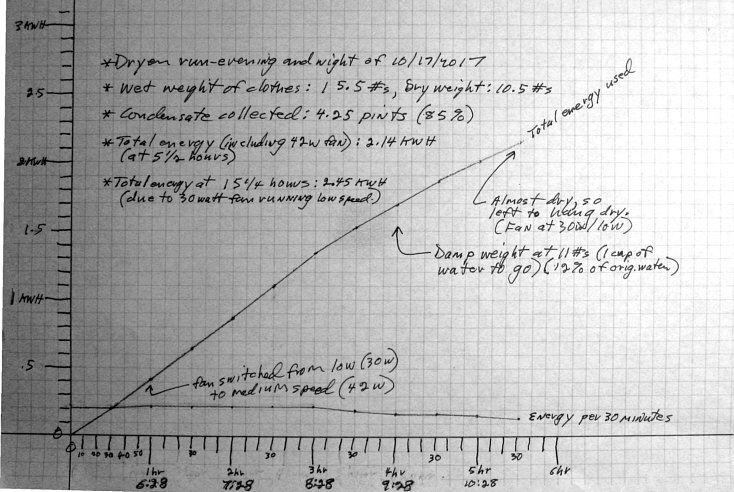 3 KWH
* Dryer run-evening and night of 10/17/2017
2.5
* Wet weight of clothes: 15.5 #s, Dry weight: 10.5 #s
* Condensate collected: 4.25 pints (85%)
Total energy used
* Total energy (including 42w fan): 2.14 KWH
(at 5 1/2 hours)
2 KWH
* Total energy at 15 1/4 hours: 2.45 KWH
(due to 30 watt fan running low speed.)
Almost dry, so
left to hang dry.
(Fan at 30w/low)
1.5
Damp weight at 11 #s (1 cup of
water to go) (12% of orig. water)
1 KWH
.5
fan switched from low (30w)
to medium speed (42w)
Energy per 30 minutes
0
0 10 20 30 40 50 30 30 30 30 30
1hr 2hr 3hr 4hr 5hr 6hr
6:28 7:28 8:28 9:28 10:28